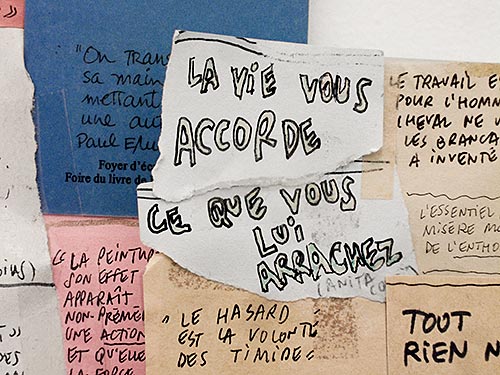 "On Tran
sa main
mettant
une au
Paul Elu
Foyer d'éc
Foire du livre de
LA VIE VOUS
ACCORDE
CE QUE VOUS
LUI
ARRACHEZ
(ANITA
LE TRAVAIL E
POUR L'HOMM
CHEVAL NE V
LES BRANCA
A INVENTÉ
L'ESSENTIEL
MISÈRE MO
DE L'ENTHO
TOUT
RIEN N
"LA PEINTUR
SON EFFET
APPARAÎT
NON-PRÉMÉ
UNE ACTION
ET QU'ELLE
LA FORCE
" LE HASARD
EST LA VOLONTÉ
DES TIMIDES